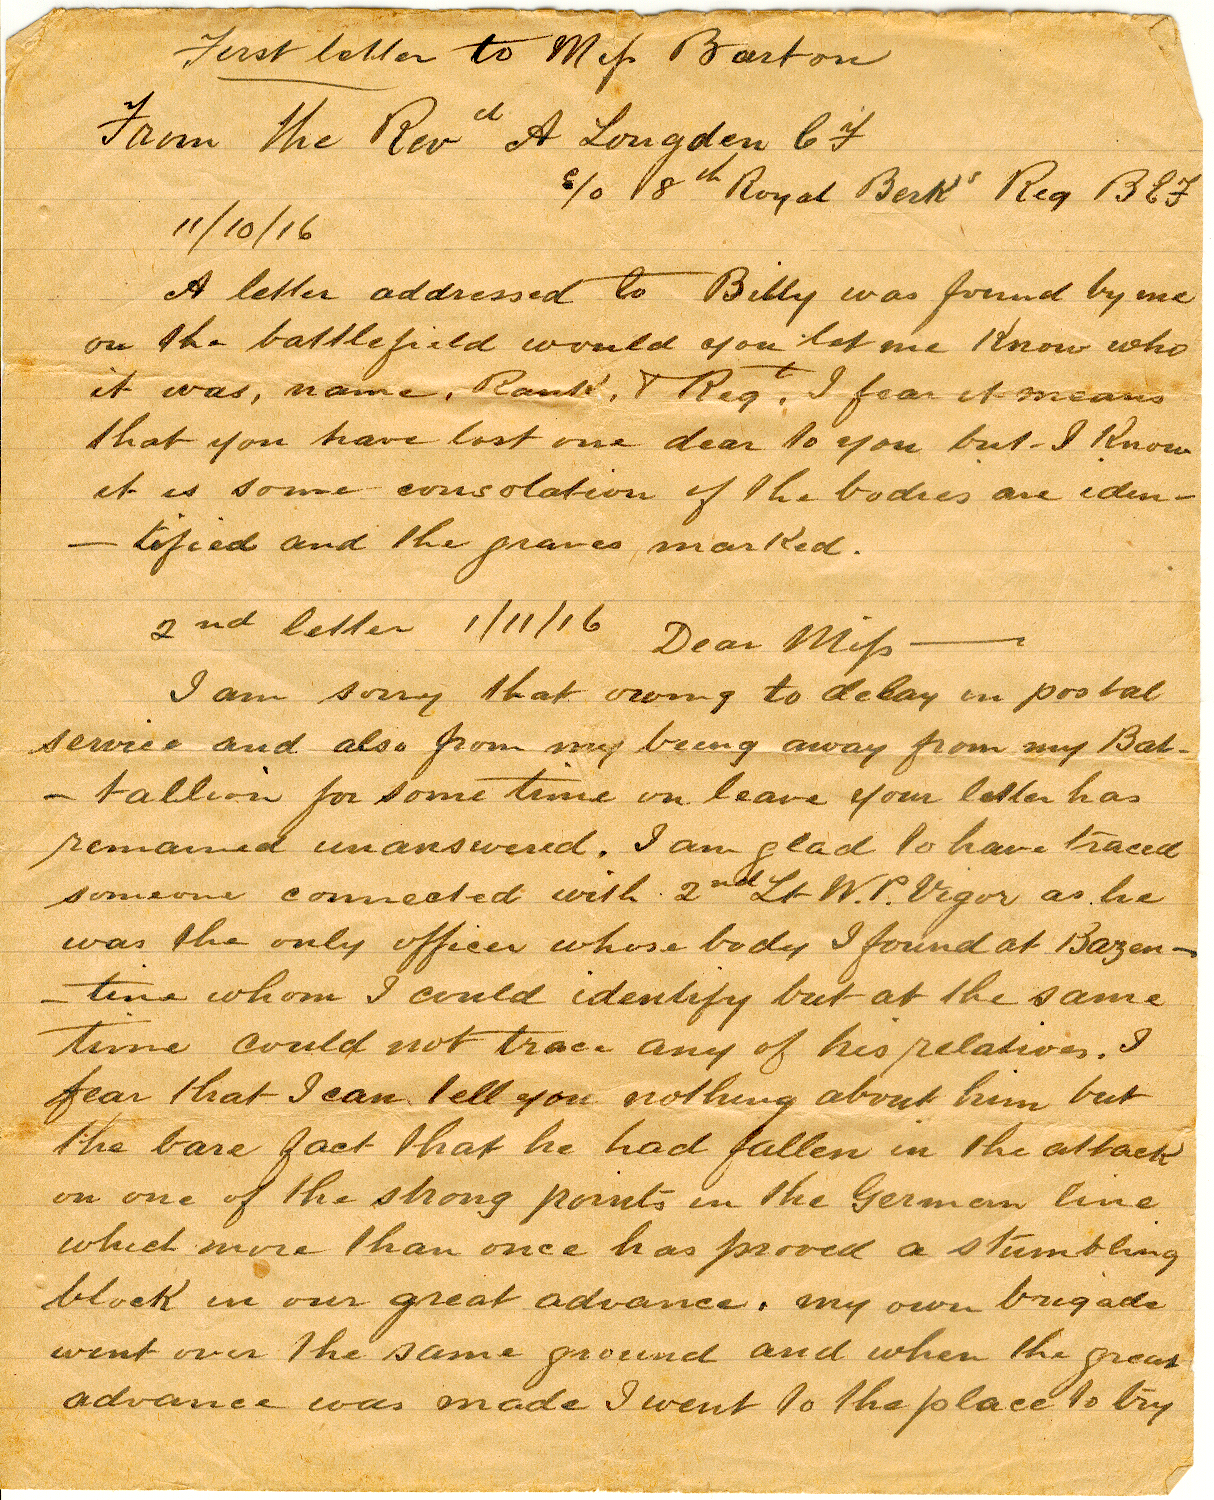 First letter to Miss Barton
From the Revd A Longden C F
c/o 8th Royal Berks Reg B E F
11/10/16
A letter addressed to Billy was found by me
on the battlefield would you let me know who
it was, name, Rank, & Regt, I fear it means
that you have lost one dear to you but I know
it is some consolation if the bodies are iden-
- tified and the graves marked.
2nd letter 1/11/16 Dear Miss —
I am sorry that owing to delay in postal
service and also from my being away from my Bat-
- tallion for some time on leave your letter has
remained unanswered. I am glad to have traced
someone connected with 2nd Lt W.P. Vigor as he
was the only officer whose body I found at Bazen-
- tine whom I could identify but at the same
time could not trace any of his relatives. I
fear that I can tell you nothing about him but
the bare fact that he had fallen in the attack
on one of the strong points in the German line
which more than once has proved a stumbling
block in our great advance. my own brigade
went over the same ground and when the great
advance was made I went to the place to try